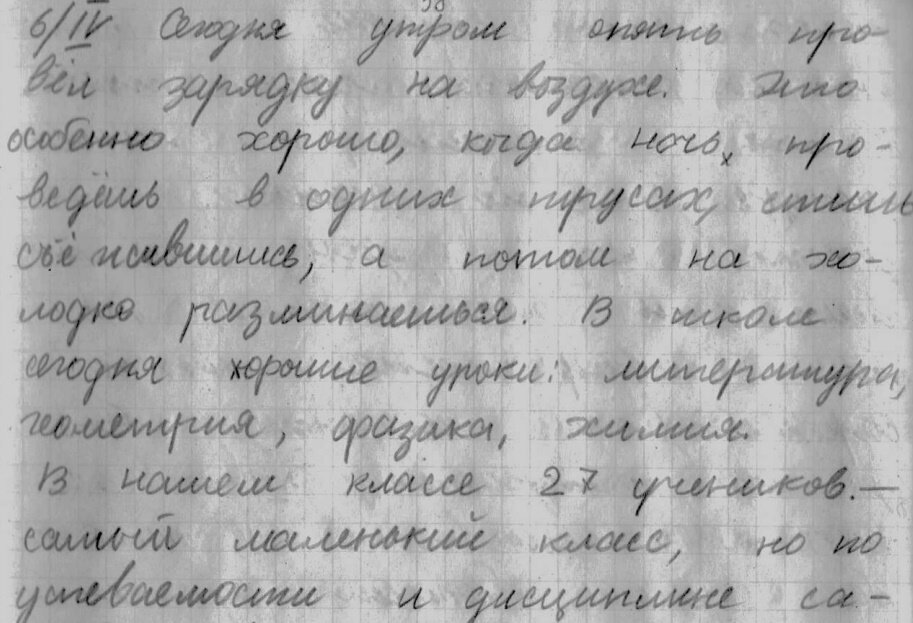 6/IV Сегодня утром опять про-
вёл зарядку на воздухе. Это
особенно хорошо, когда ночь, про-
ведёшь в одних трусах, спишь
съёжившись, а потом на хо-
лодке разминаешься. В школе
сегодня хорошие уроки: литература,
геометрия, физика, химия.
В нашем классе 27 учеников. —
самый маленький класс, но по
успеваемости и дисциплине са-